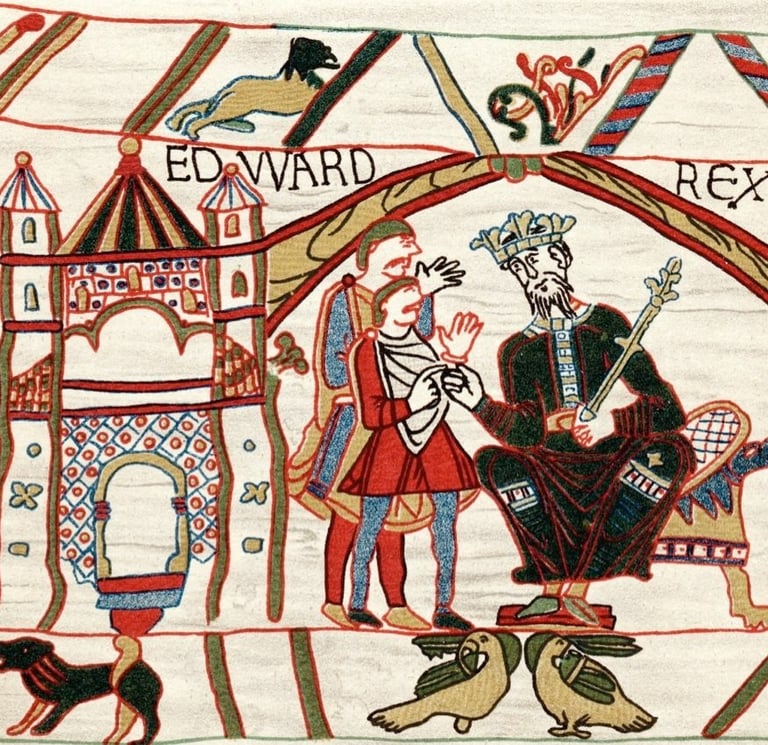 EDVVARD REX